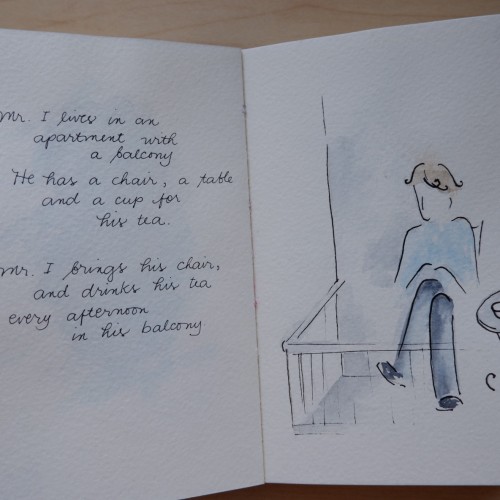 Mr. I lives in an
apartment with
a balcony
He has a chair, a table
and a cup for
his tea.
Mr. I brings his chair,
and drinks his tea
every afternoon
in his balcony